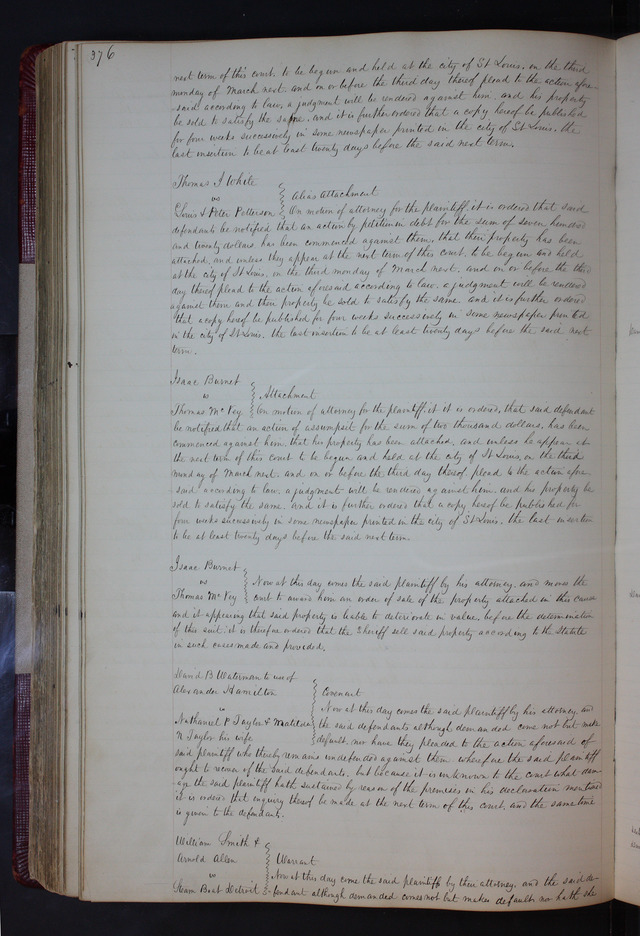 376
next term of this court. to be begun and held at the city of St Louis, on the third
monday of March next. and on or before the third day thereof plead to the action afore-
said according to law, a judgment will be rendered against him and his property
be sold to satisfy the same. and it is further ordered that a copy hereof be published
for four weeks successively in some newspaper printed in the city of St. Louis, the
last insertion to be at least twenty days before the said next term.
Thomas J White
vs
Alias Attachment
& Peter Patterson
On motion of attorney for the plaintiff, it is ordered that said
defendants be notified that an action by petition in debt for the sum of seven hundred
and twenty dollars has been commenced against them, that their property has been
attached, and unless they appear at the next term of this court, to be begun and held
at the city of St Louis, in the third monday of March next, and on or before the third
day thereof plead to the action aforesaid according to law, a judgment will be rendered
against them and their property be sold to satisfy the same and it is further ordered
that a copy hereof be published for four weeks successively in some newspaper printed
in the city of St Louis. the last insertion to be at least twenty days before the said next
term.
Isaac Burnet
vs
Attachment
Thomas McVey
On motion of attorney for the plaintiff, it it is ordered, that said defendant
be notified that an action of assumpsit for the sum of two thousand dollars, has been
commenced against him, that his property has been attached, and unless he appear at
the next term of this court to be begun and held at the city of St Louis, on the third
monday of March next. and on or before the third day thereof, plead to the action afore-
said according to law, a judgment will be rendered against him. and his property be
sold to satisfy the same. And it is further ordered that a copy hereof be published for
four weeks successively in some newspaper printed in the city of St Louis. the last insertion
to be at least twenty days before the said next term.
Isaac Burnet
vs
Thomas McVey
Now at this day comes the said plaintiff by his attorney. and moves the
court to award him an order of sale of the property attached in this cause
and it appearing that said property is liable to deteriorate in value, before the determination
of this suit. it is therefore ordered that the Sheriff sell said property according to the Statute
in such cases made and provided.
David B Waterman to use of
Alexander Hamilton
vs
Covenant
Nathaniel P Taylor & Matilda
N Taylor his wife
Now at this day comes the said plaintiff by his attorney, and
the said defendants although demanded come not but make
default, nor have they pleaded to the action aforesaid of
said plaintiff who thereby remains undefended against them wherefore the said plaintiff
ought to recover of the said defendants. but because it is unknown to the court what dam-
age the said plaintiff hath sustained by reason of the premises in his declaration mentioned
it is ordered that enquiry thereof be made at the next term of this court, and the same time
is given to the defendants.
William Smith &
Arnold Allen
vs
Warrant
Steam Boat Detroit
Now at this day come the said plaintiffs by their attorney, and the said de-
fendant although demanded comes not but makes default nor hath she